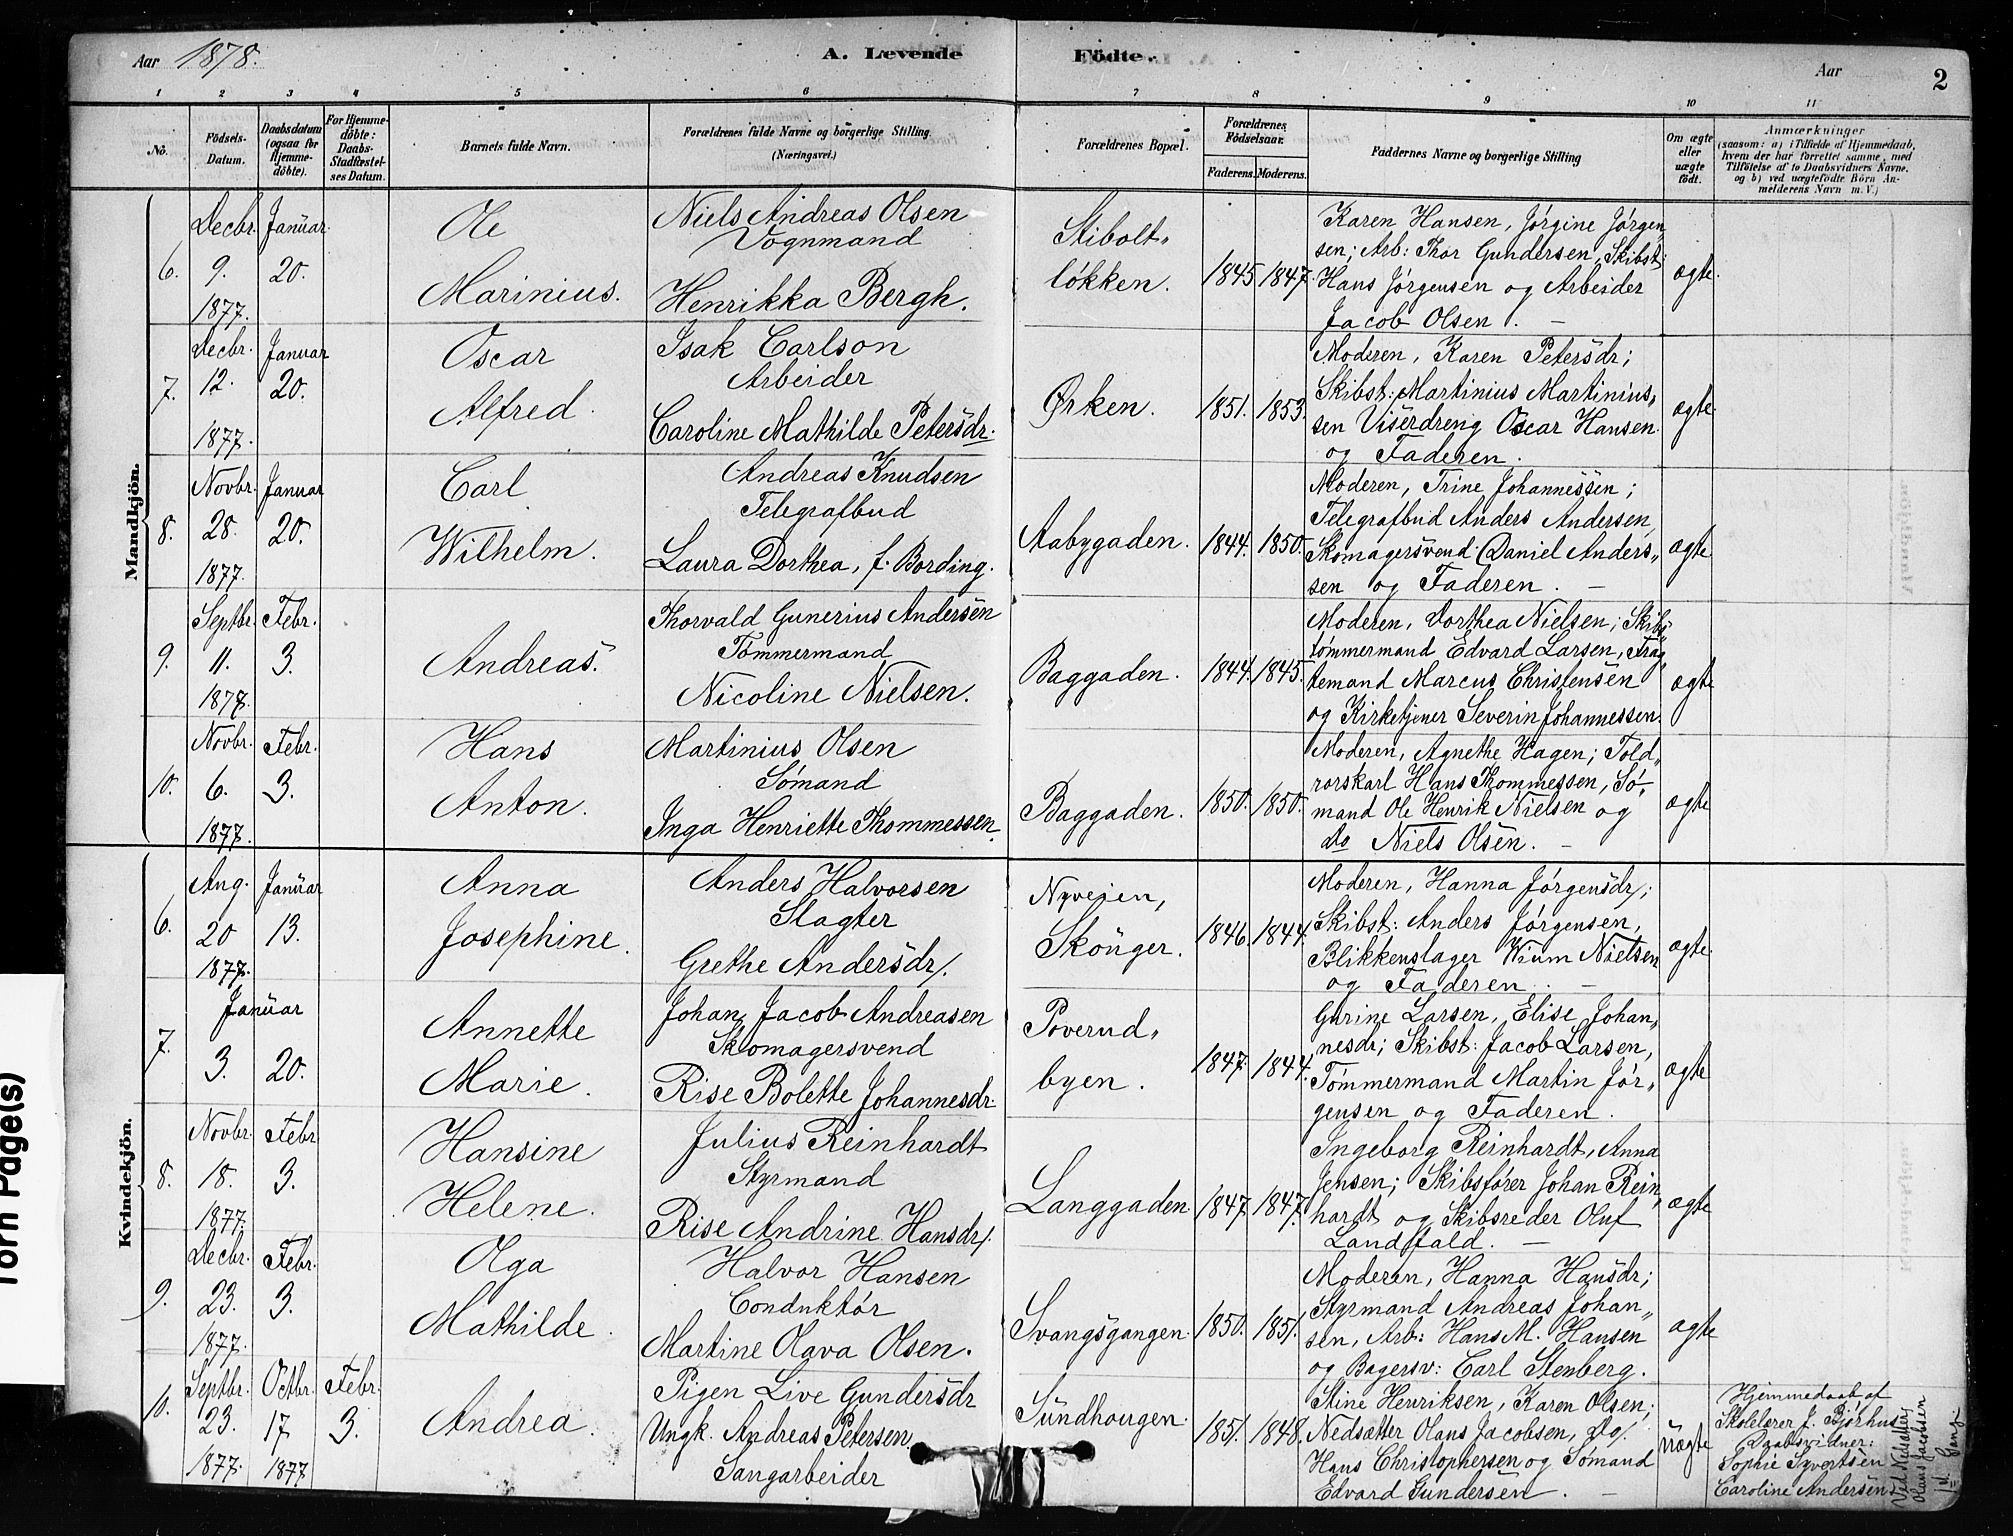 Aar 1878. A. Levende Födte. Aar 2
1 2 3 4 5 6 7 8 9 10 11
No. Födsels-Datum. Daabsdatum (ogsaa for Hjemme-döbte). For Hjemme-döbte: Daabs-Stadfæstel-ses Datum. Barnets fulde Navn. Forældrenes fulde Navne og borgerlige Stilling. (Næringsvei.) Forældrenes Bopæl. Forældrenes Födselsaar. Faderens. Moderens. Faddernes Navne og borgerlige Stilling Om ægte eller uægte födt. Anmærkninger
(saasom: a) i Tilfælde af Hjemmedaab,
hvem der har forrettet samme, med
Tilföielse af to Daabsvidners Navne.
og b) ved uægtefödte Börn An-
melderens Navn m. V.)
Mandkjön.
6. Decbr. 9. 1877. Januar 20.
Ole
Marinius.
Niels Andreas Olsen
Vognmand
Henrikka Bergh.
Stibolt„
løkken.
1845 1847.
Karen Hansen, Jørgine Jørgen„
sen; Arb: Thor Gundersen, Skibst:
Hans Jørgensen og Arbeider
Jacob Olsen.
ægte.
7. Decbr. 12. 1877. Januar 20.
Oscar
Alfred.
Isak Carlson
Arbeider
Caroline Mathilde Petersdr.
Ørken.
1851. 1853.
Moderen, Karen Petersdr;
Skibst: Martinius Martinius„
sen Viserdreng Oscar Hansen
og Faderen.
ægte.
8. Novbr. 28. 1877. Januar 20.
Carl
Wilhelm.
Andreas Knudsen
Telegrafbud
Laura Dorthea, f. Bording.
Aabygaden.
1844. 1850.
Moderen, Trine Johannessen;
Telegrafbud Anders Andersen,
Skomagersvend Daniel Anders„
sen og Faderen.
ægte
9. Septbr. 11. 1877. Febr. 3.
Andreas.
Thorvald Gunerius Andersen
Tømmermand
Nicoline Nielsen.
Baggaden.
1844. 1845.
Moderen, Dorthea Nielsen; Skibs„
tømmermand Edvard Larsen, Frag„
temand Marcus Christensen
og Kirketjener Severin Johannessen.
ægte
10. Novbr. 6. 1877. Febr. 3.
Hans
Anton.
Martinius Olsen
Sømand
Inga Henriette Thommessen.
Baggaden.
1850. 1850.
Moderen, Agnethe Hagen; Told„
rorskarl Hans Thommessen, Sø„
mand Ole Henrik Nielsen og
do Niels Olsen.
ægte
Kvindekjön.
6. Aug. 20 1877. Januar 13.
Anna
Josephine.
Anders Halvorsen
Slagter
Grethe Andersdr.
Nyveien,
Skouger.
1846. 1844.
Moderen, Hanna Jørgensdr;
Skibst: Anders Jørgensen,
Blikkenslager Wium Nielsen
og Faderen.
ægte.
7. Januar 3. 20.
Annette
Marie.
Johan Jacob Andreasen
Skomagersvend
Rise Bolette Johannesdr.
Poverud„
byen.
1847. 1844.
Gurine Larsen, Elise Johan„
nesdr; Skibst: Jacob Larsen,
Tømmermand Martin Jør„
gensen og Faderen.
ægte
8. Novbr. 18. 1877. Febr. 3.
Hansine
Helene.
Julius Reinhardt
Styrmand
Rise Andrine Hansdr.
Langgaden
1847 1847.
Ingeborg Reinhardt, Anna
Jensen; Skibsfører Johan Rein„
hardt og Skibsreder Oluf
Landfald.
ægte
9. Decbr. 23. 1877. Febr. 3.
Olga
Mathilde.
Halvor Hansen
Conduktør
Martine Olava Olsen.
Svangsgangen.
1850. 1851.
Moderen, Hanna Hansdr;
Styrmand Andreas Johan„
sen, Arb: Hans M. Hansen
og Bagersv: Carl Stenberg.
ægte
10. Septbr. 23. 1877. Octbr. 17 1877 Febr. 3.
Andrea.
Pigen Live Gundersdr
Ungk. Andreas Petersen
Saugarbeider
Sundhougen.
1851. 1848.
Stine Henriksen, Karen Olsen;
Nedsætter Olaus Jacobsen, Do.
Hans Christophersen og Sømand
Edvard Gundersen.
uægte
Hjemmedaab af
Skolelærer J. Bjørhus
Daabsvidner:
Sophie Syvertsen
Caroline Andersen
Ved Nedsætter
Olaus Jacobsen
1ste Gang
Torn Page(s)